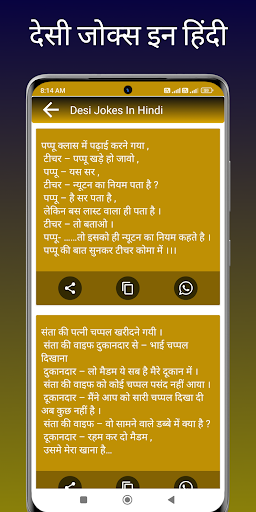 देसी जोक्स इन हिंदी
8:14 AM
Desi Jokes In Hindi
पप्पू क्लास में पढ़ाई करने गया ,
टीचर – पप्पू खड़े हो जावो ,
पप्पू – यस सर ,
टीचर – न्यूटन का नियम पता है ?
पप्पू – है सर पता है ,
लेकिन बस लास्ट वाला ही पता है ।
टीचर – तो बताओ ।
पप्पू- ……तो इसको ही न्यूटन का नियम कहते है ।
पप्पू की बात सुनकर टीचर कोमा में ।।।
संता की पत्नी चप्पल खरीदने गयी ।
संता की वाइफ दुकानदार से – भाई चप्पल
दिखाना
दुकानदार – लो मैडम ये सब हे मैरे दूकान में ।
संता की वाइफ को कोई चप्पल पसंद नहीं आया ।
दुकानदार – मैंने आप को सारी चप्पल दिखा दी
अब कुछ नहीं है ।
संता की वाइफ – वो सामने वाले डब्बे में क्या है ?
दुकानदार – रहम कर दो मैडम ,
उसमे मेरा खाना है…